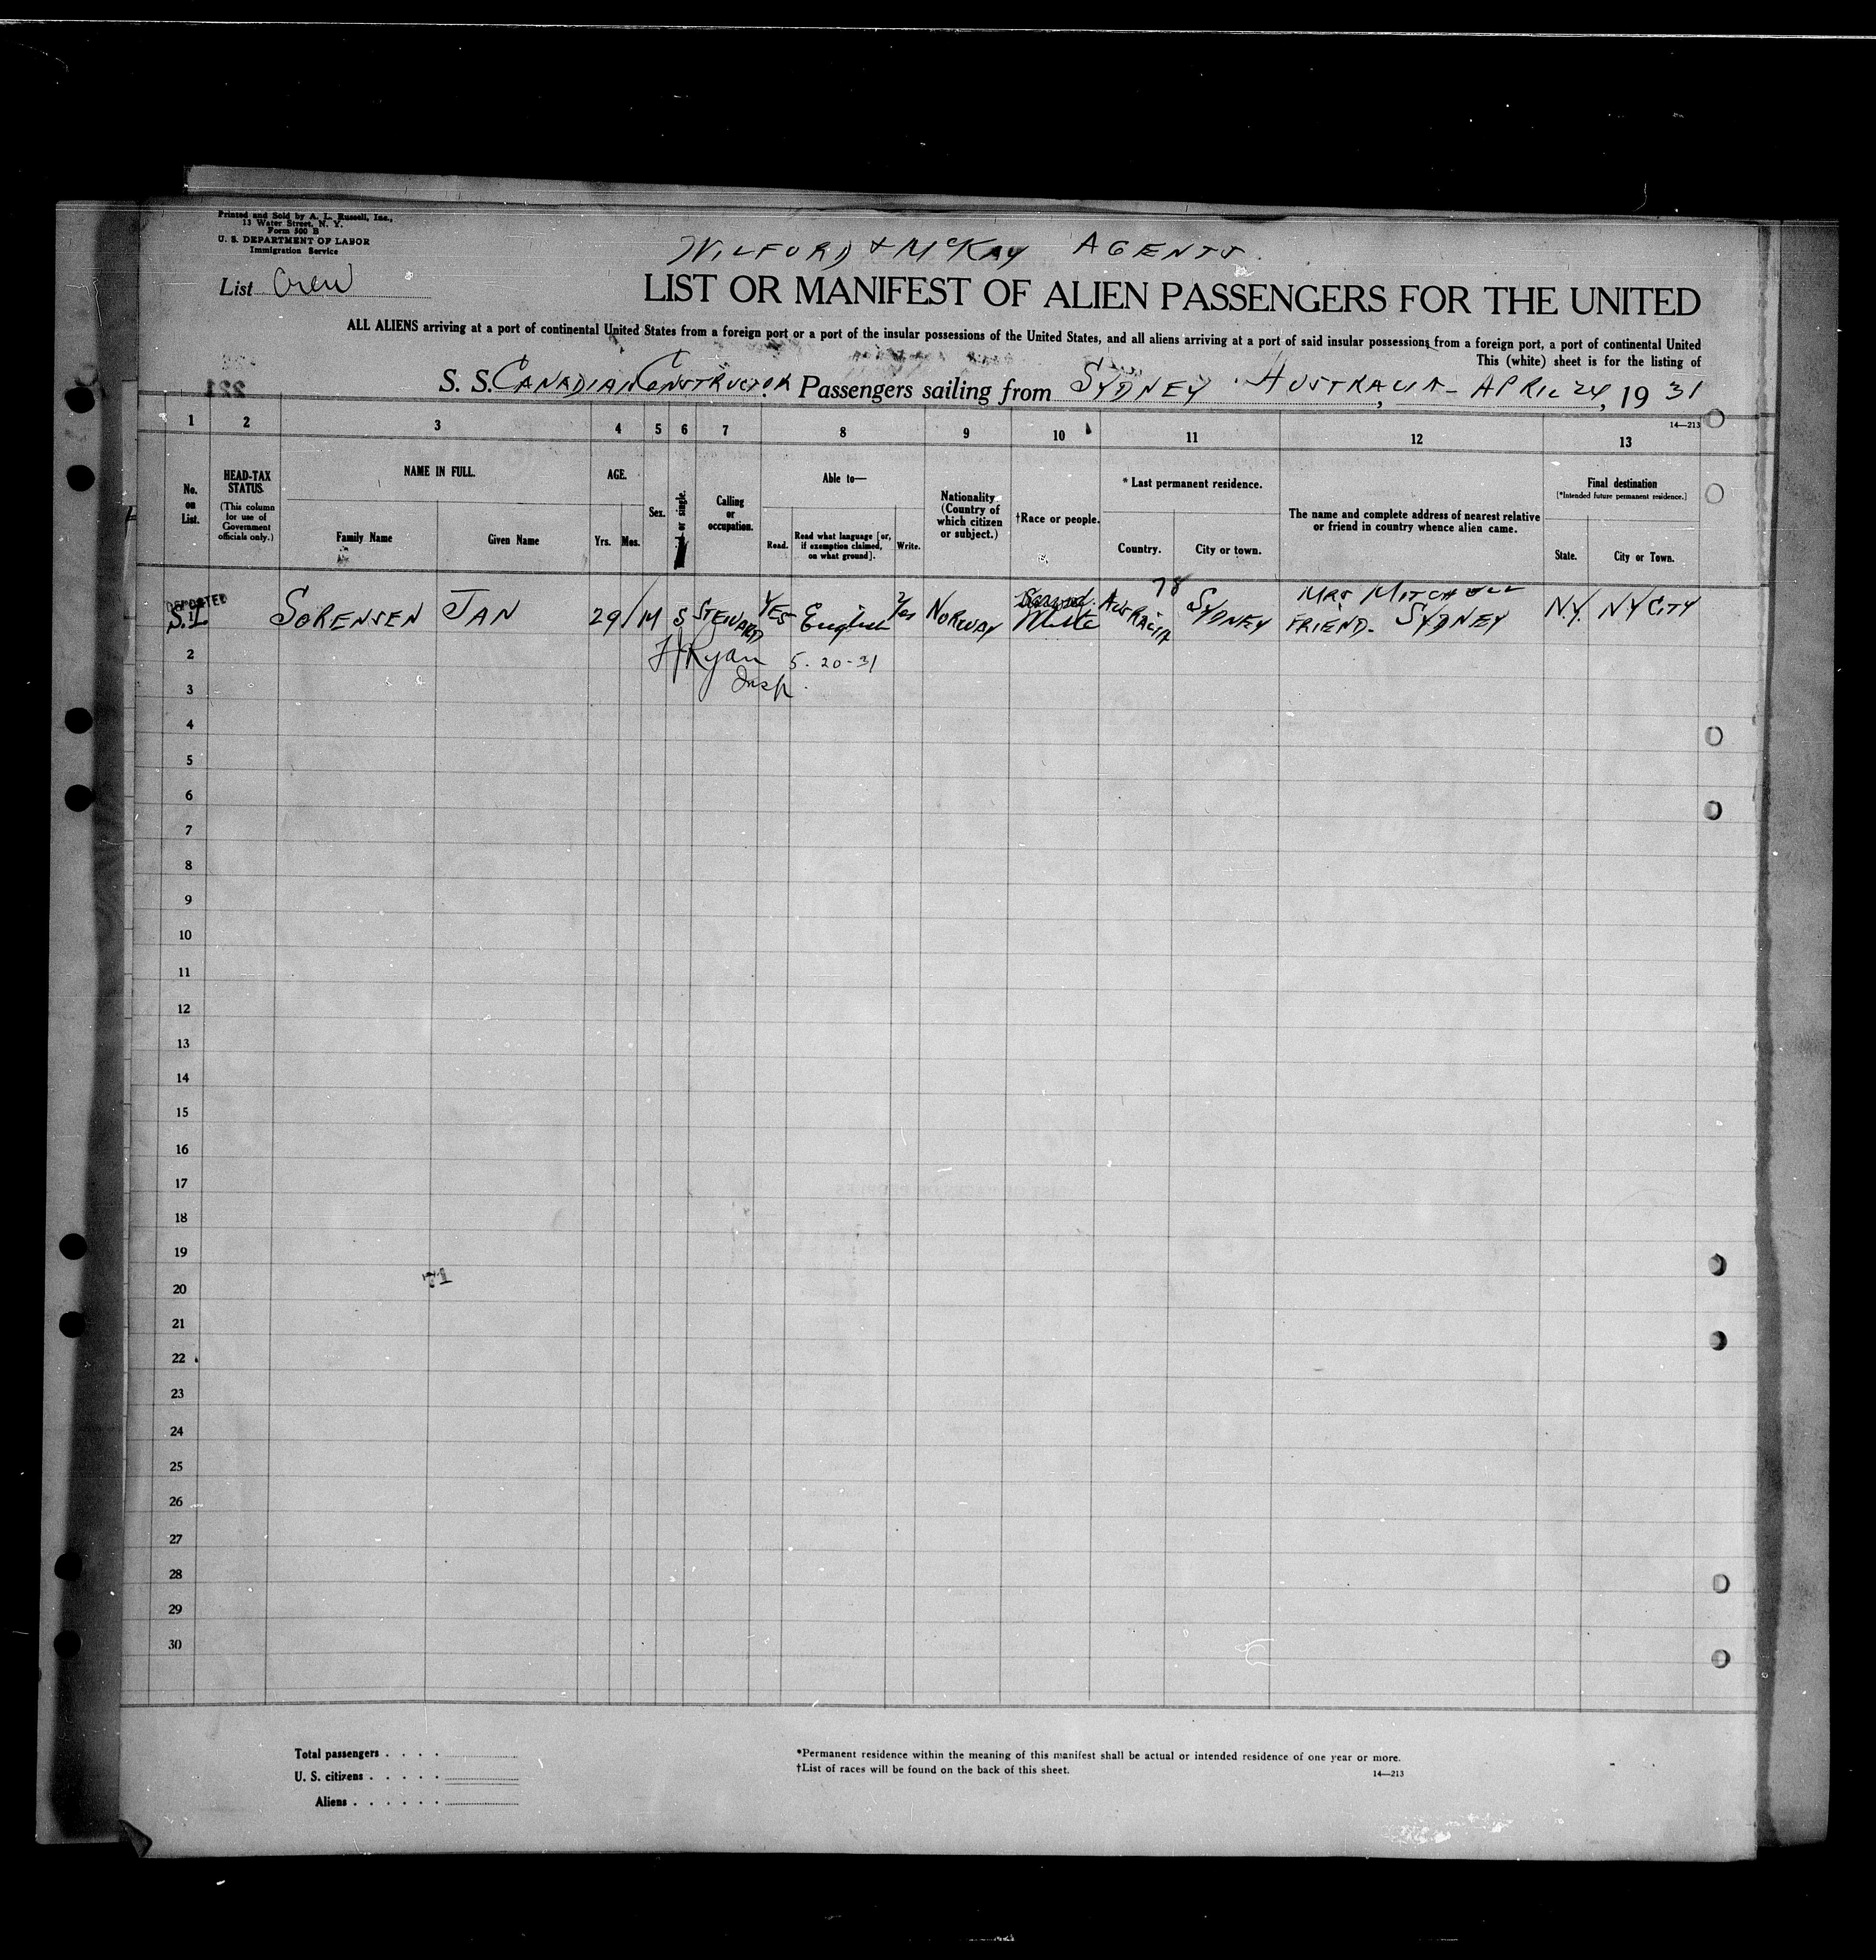 Printed and Sold by A. L. Russell, Inc.,
13 Water Street, N. Y.
Form 500 B
U. S. DEPARTMENT OF LABOR
Immigration Service
WILFORD & McKAY AGENTS.
List Crew
LIST OR MANIFEST OF ALIEN PASSENGERS FOR THE UNITED
ALL ALIENS arriving at a port of continental United States from a foreign port or a port of the insular possessions of the United States, and all aliens arriving at a port of said insular possessions from a foreign port, a port of continental United
This (white) sheet is for the listing of
S. S. CANADIAN CONSTRUCTOR. Passengers sailing from SYDNEY AUSTRALIA - APRIL 24, 1931
14—213
1 2 3 4 5 6 7 8 9 10 11 12 13
No. on List.
HEAD-TAX STATUS.
(This column for use of Government officials only.)
NAME IN FULL.
Family Name
Given Name
AGE.
Yrs. Mos.
Sex.
or single.
Calling or occupation.
Able to—
Read.
Read what language [or, if exemption claimed, on what ground].
Write.
Nationality. (Country of which citizen or subject.)
†Race or people.
* Last permanent residence.
Country.
City or town.
The name and complete address of nearest relative or friend in country whence alien came.
Final destination
[*Intended future permanent residence.]
State.
City or Town.
DEPORTED
78
S.I. SORENSEN JAN 29 M S STEWARD YES English Yes NORWAY AUSTRALIA SYDNEY MRS MITCHELL FRIEND - SYDNEY N.Y. NY CITY
2 H Ryan 5-20-31
3 Insp.
4
5
6
7
8
9
10
11
12
13
14
15
16
17
18
19
20
21
22
23
24
25
26
27
28
29
30
Total passengers . . . .
U. S. citizens . . . . .
Aliens . . . . . .
*Permanent residence within the meaning of this manifest shall be actual or intended residence of one year or more.
†List of races will be found on the back of this sheet.
14—213